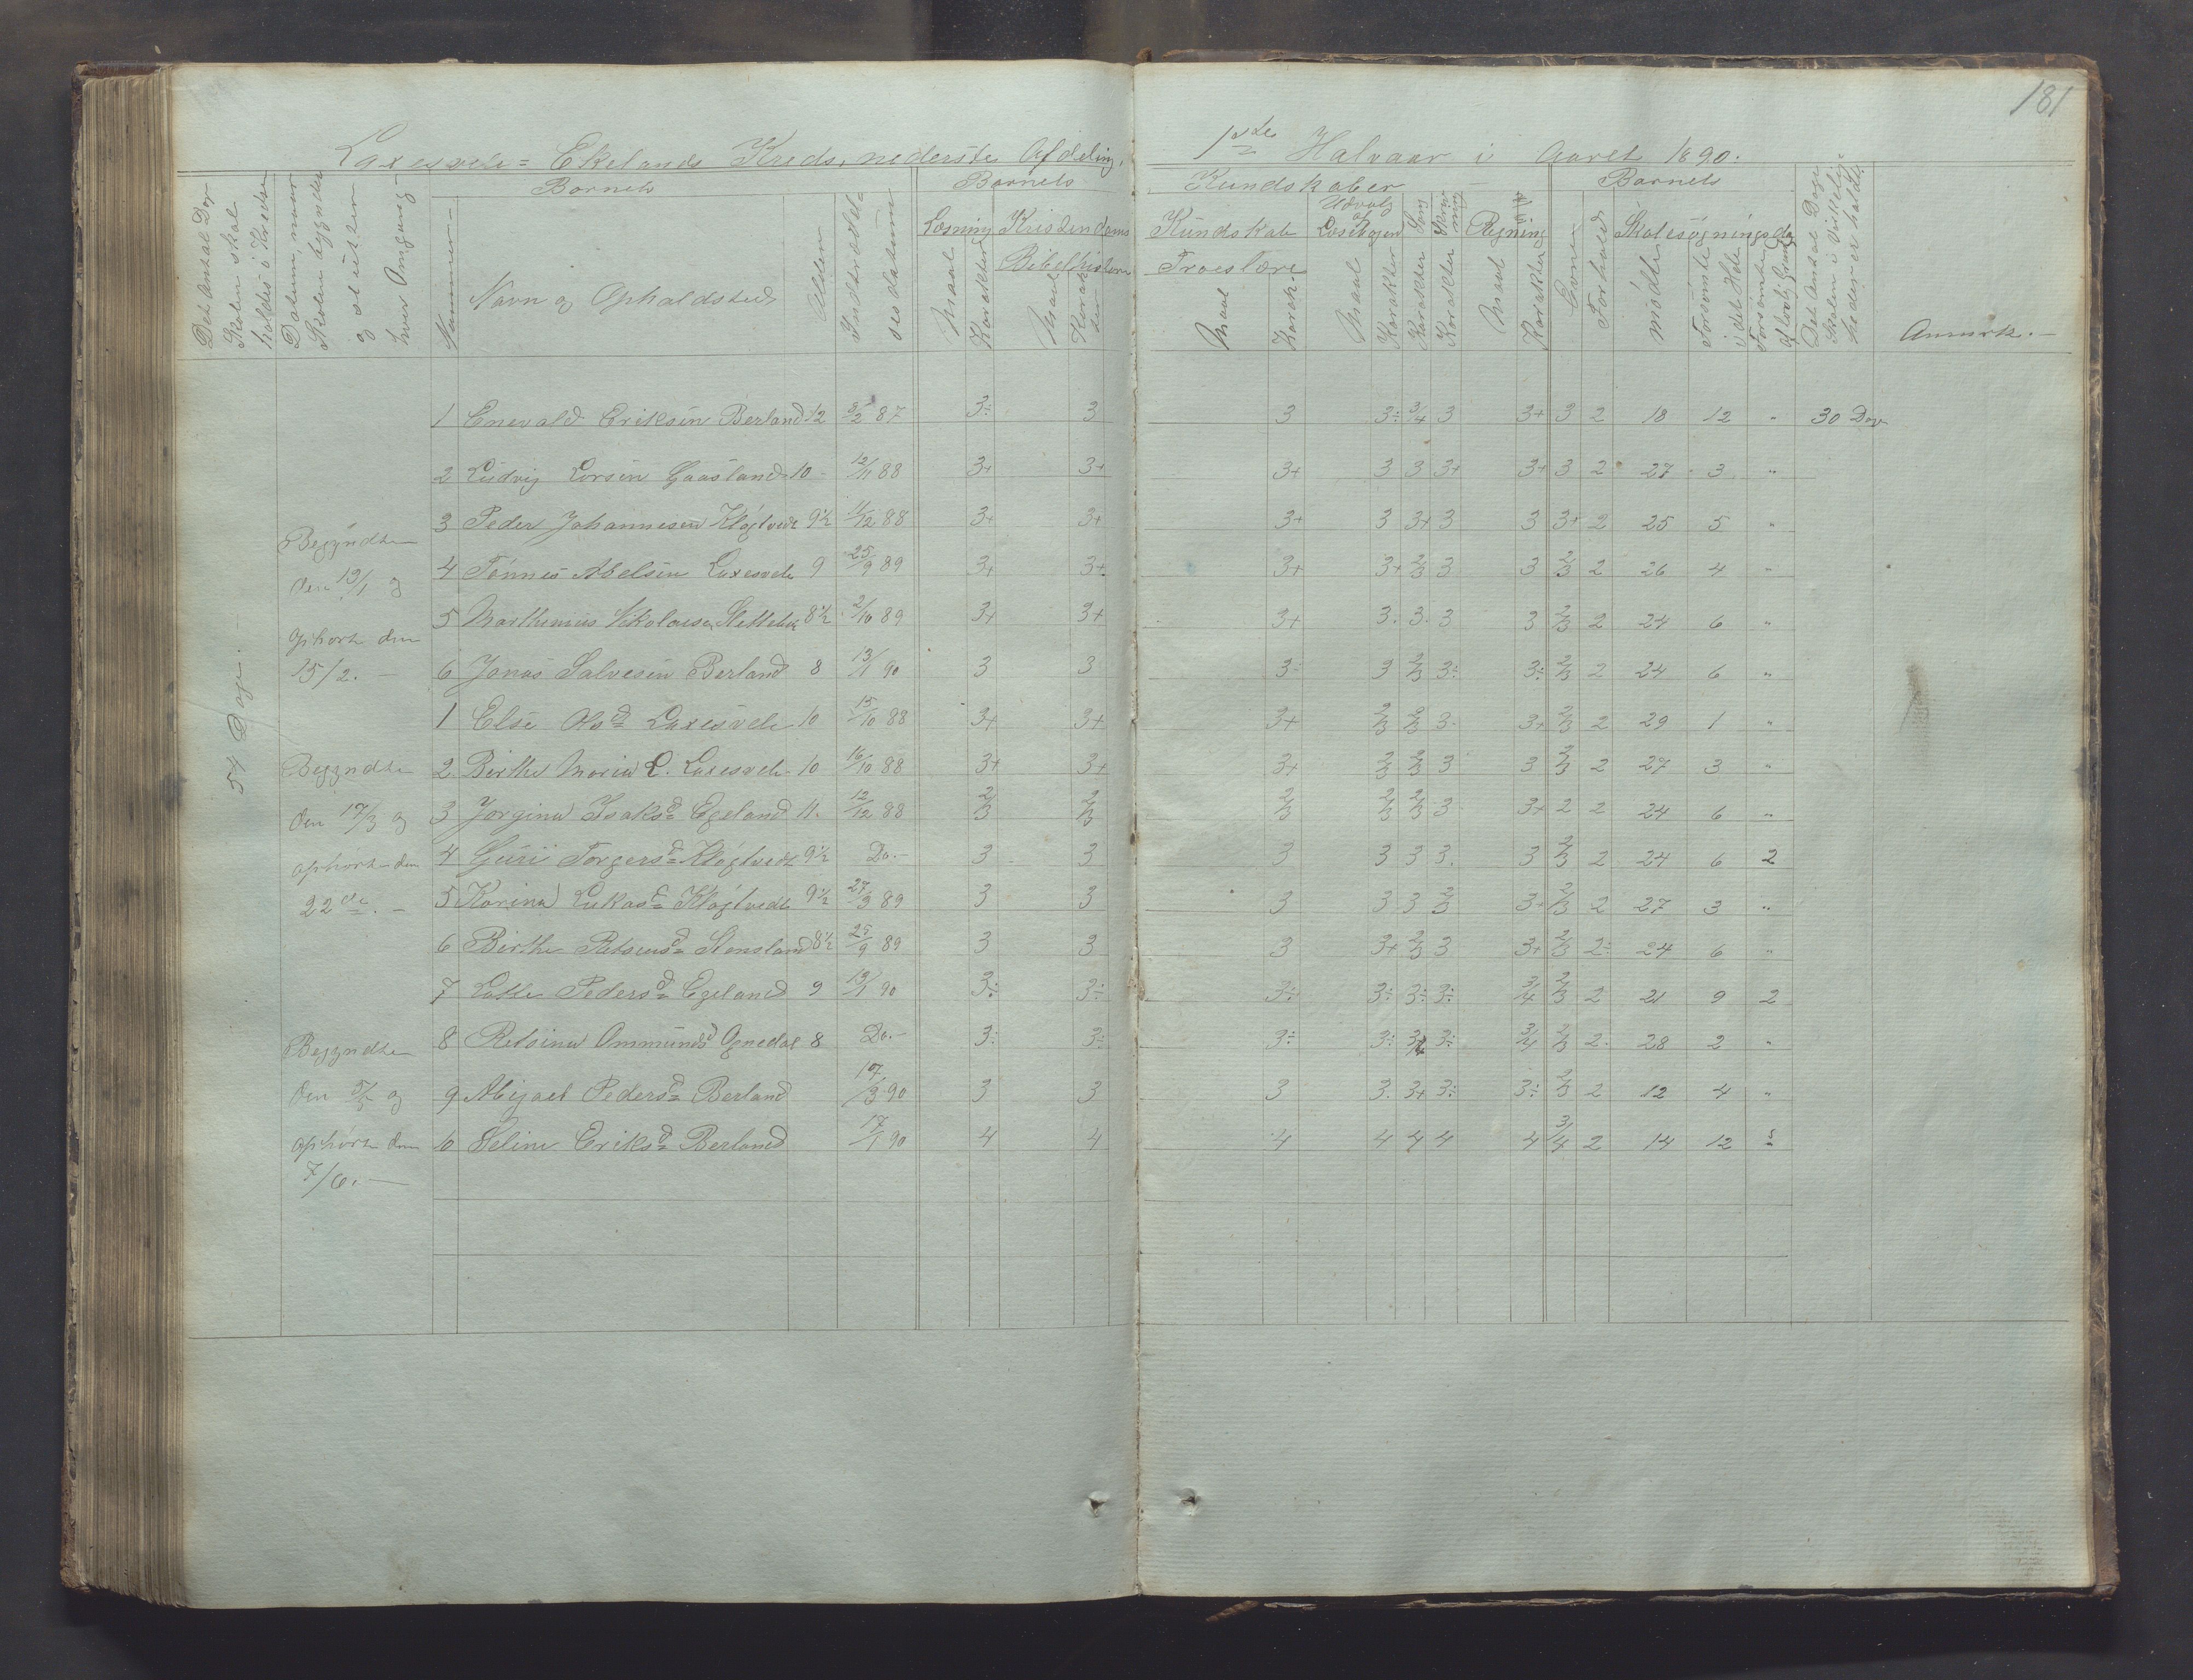 181
Laxesvele = Ekelands Kreds, nederste Afdeling,
1ste Halvaar i Aaret 1890.
Det Antal Dage Skolen skal holdes i Kredsen
Datum, naar Skolen begynder og slutter hver Omgang
Nummer
Barnets
Navn og Opholdsted
Alder
Indtrædelsesdatum
Barnets
Kundskaber
Læsning
Kristendoms
Kundskab
Bibelhistorie
Troeslære
Udvalg af Læsebogen
Sang
Skrivning
Regning
Maal
Karakter
Maal
Karakter
Maal
Karak-
Maal
Karakter
Karakter
Karakter
Maal
Karakter
Barnets
Evner
Forhold
Skolesøgningsdage
mødte
forsømte i det Hele
forsømte af lovlig Grund
Det Antal Dage Skolen i Virkelighed er holdt
Anmærk.
54 Dage.
Begyndte den 13/1 og ophørte den 15/2.
Begyndte den 17/3 og ophørte den 22de.
Begyndte den 5/5 og ophørte den 7/6.
1 Enevald Eriksen Berland 12 3/2 87 3÷ 3 3 3÷ 3/4 3 3+ 3 2 18 12 " 30 Dage
2 Ludvig Larsen Gaasland 10 12/11 88 3+ 3+ 3+ 3 3 3+ 3+ 3 2 27 3 "
3 Peder Johannesen Kløgtvedt 9½ 11/12 88 3+ 3+ 3+ 3 3+ 3 3 3+ 2 25 5 "
4 Tønnes Abelsen Laxesvele 9 25/9 89 3+ 3+ 3+ 3+ 2/3 3 3 2/3 2 26 4 "
5 Marthinius Nikolaisen Slettebø 8½ 2/10 89 3+ 3+ 3+ 3. 3. 3 3 2/3 2 24 6 "
6 Jonas Salvesen Berland 8 13/1 90 3 3 3÷ 3 2/3 3÷ 3÷ 2/3 2 24 6 "
1 Else Olsd Laxesvele 10 15/10 88 3+ 3+ 3+ 2/3 2/3 3 3+ 2/3 2 29 1 "
2 Berthe Maria L. Laxesvele 10 16/10 88 3+ 3+ 3+ 2/3 2/3 3 3 2/3 2 27 3 "
3 Jorgina Isaksd Egeland 11 12/12 88 2/3 2/3 2/3 2/3 2/3 3 3+ 2 2 24 6 "
4 Guri Torgersd Kløgtvedt 9½ Do. 3 3 3 3 3 3. 3 2/3 2 24 6 2
5 Karina Lukasd Kløgtvedt 9½ 27/3 89 3 3 3 3 3 2/3 3+ 2/3 2 27 3 "
6 Berthe Retsiusd Stensland 8½ 25/9 89 3 3 3 3+ 2/3 3 3+ 2/3 2÷ 24 6 "
7 Lotte Pedersd Egeland 9 13/1 90 3÷ 3÷ 3÷ 3÷ 3÷ 3÷ 3/4 2/3 2 21 9 2
8 Retsina Ommundsd Ognedal 8 Do. 3÷ 3÷ 3÷ 3÷ 3/4 3÷ 3/4 2/3 2 28 2 "
9 Abigael Pedersd Berland 17/3 90 3 3 3 3. 3+ 3÷ 3÷ 2/3 2 12 4 "
10 Seline Eriksd Berland 17/1 90 4 4 4 4 4 4 4 3/4 2 14 12